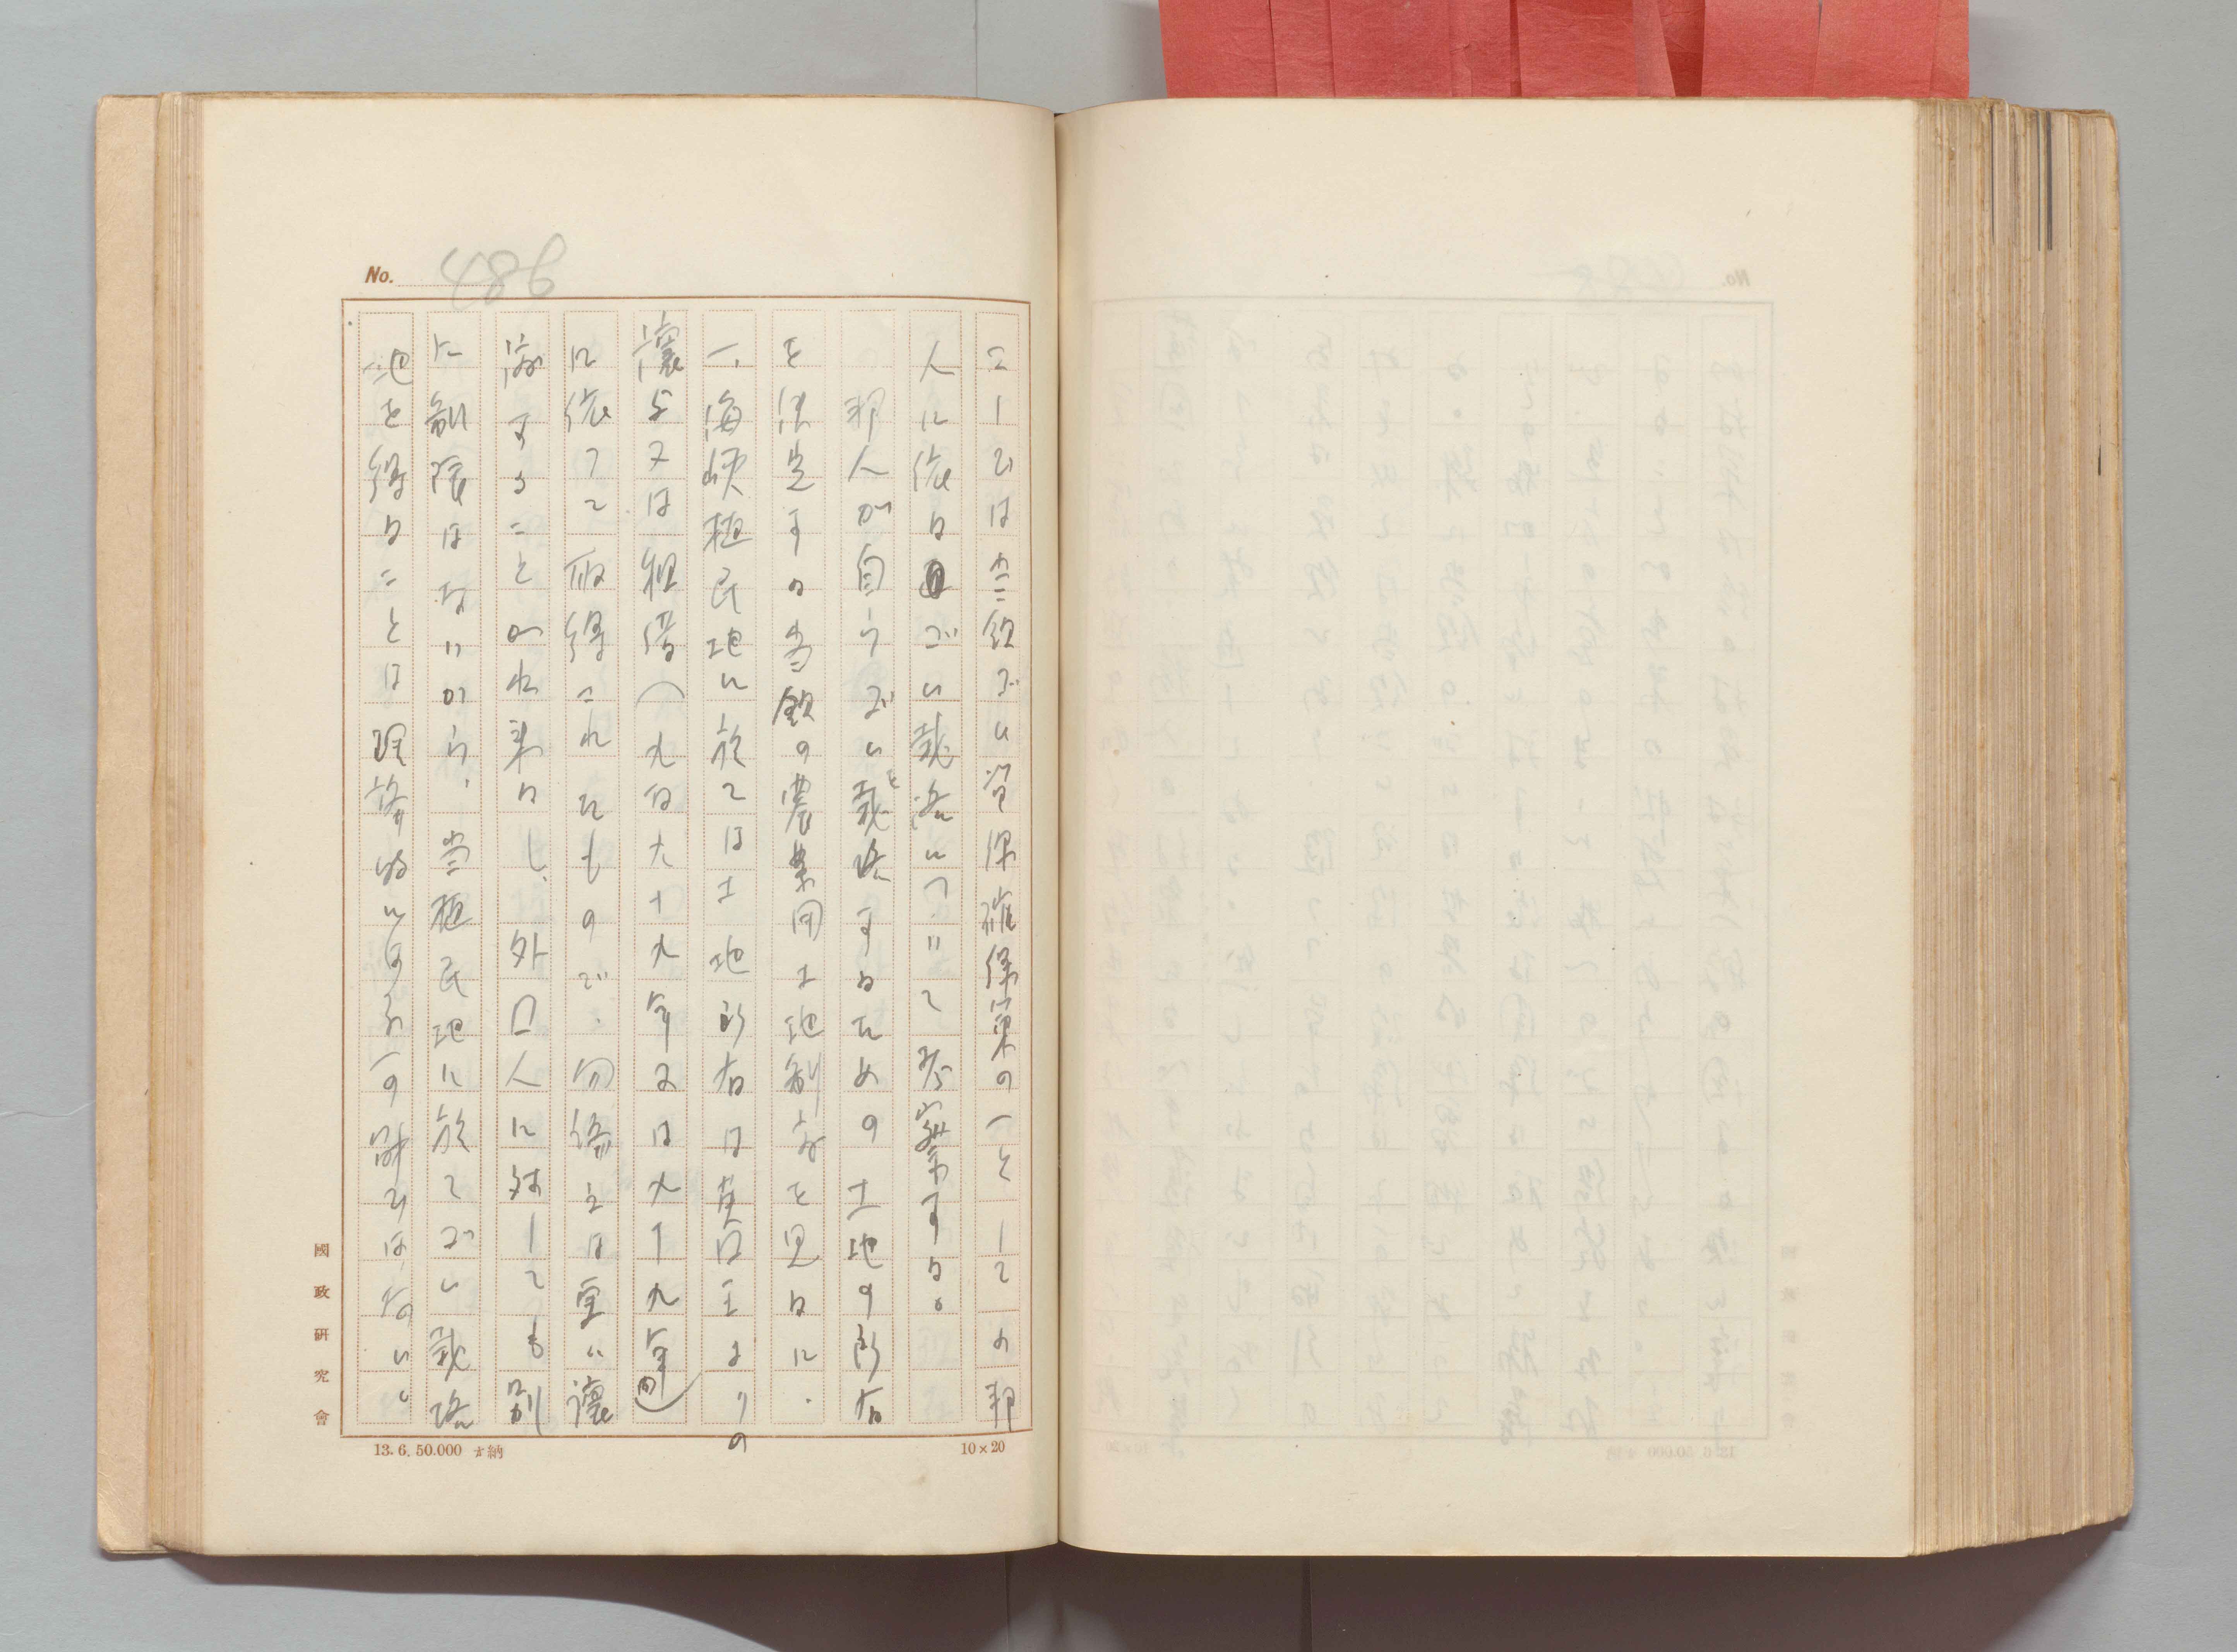 No.
こゝでは当領ゴム資源確保策の一としての邦
人に依るゴム栽培について考察する。
邦人が自らゴムを栽培するための土地の所有
を決定する当領の農業用土地制度を見るに、
一、海峡植民地に於ては土地所有は英国王よりの
譲与又は租借(九百九十九年又は九十九年間)
に依って取得されたもので、勿論之は更に譲
渡することが出来るし、外国人に対しても別
に制限はないから、当植民地に於てゴム栽培
地を得ることは理論的に
國政研究會
13.6.50.000 納
10×20